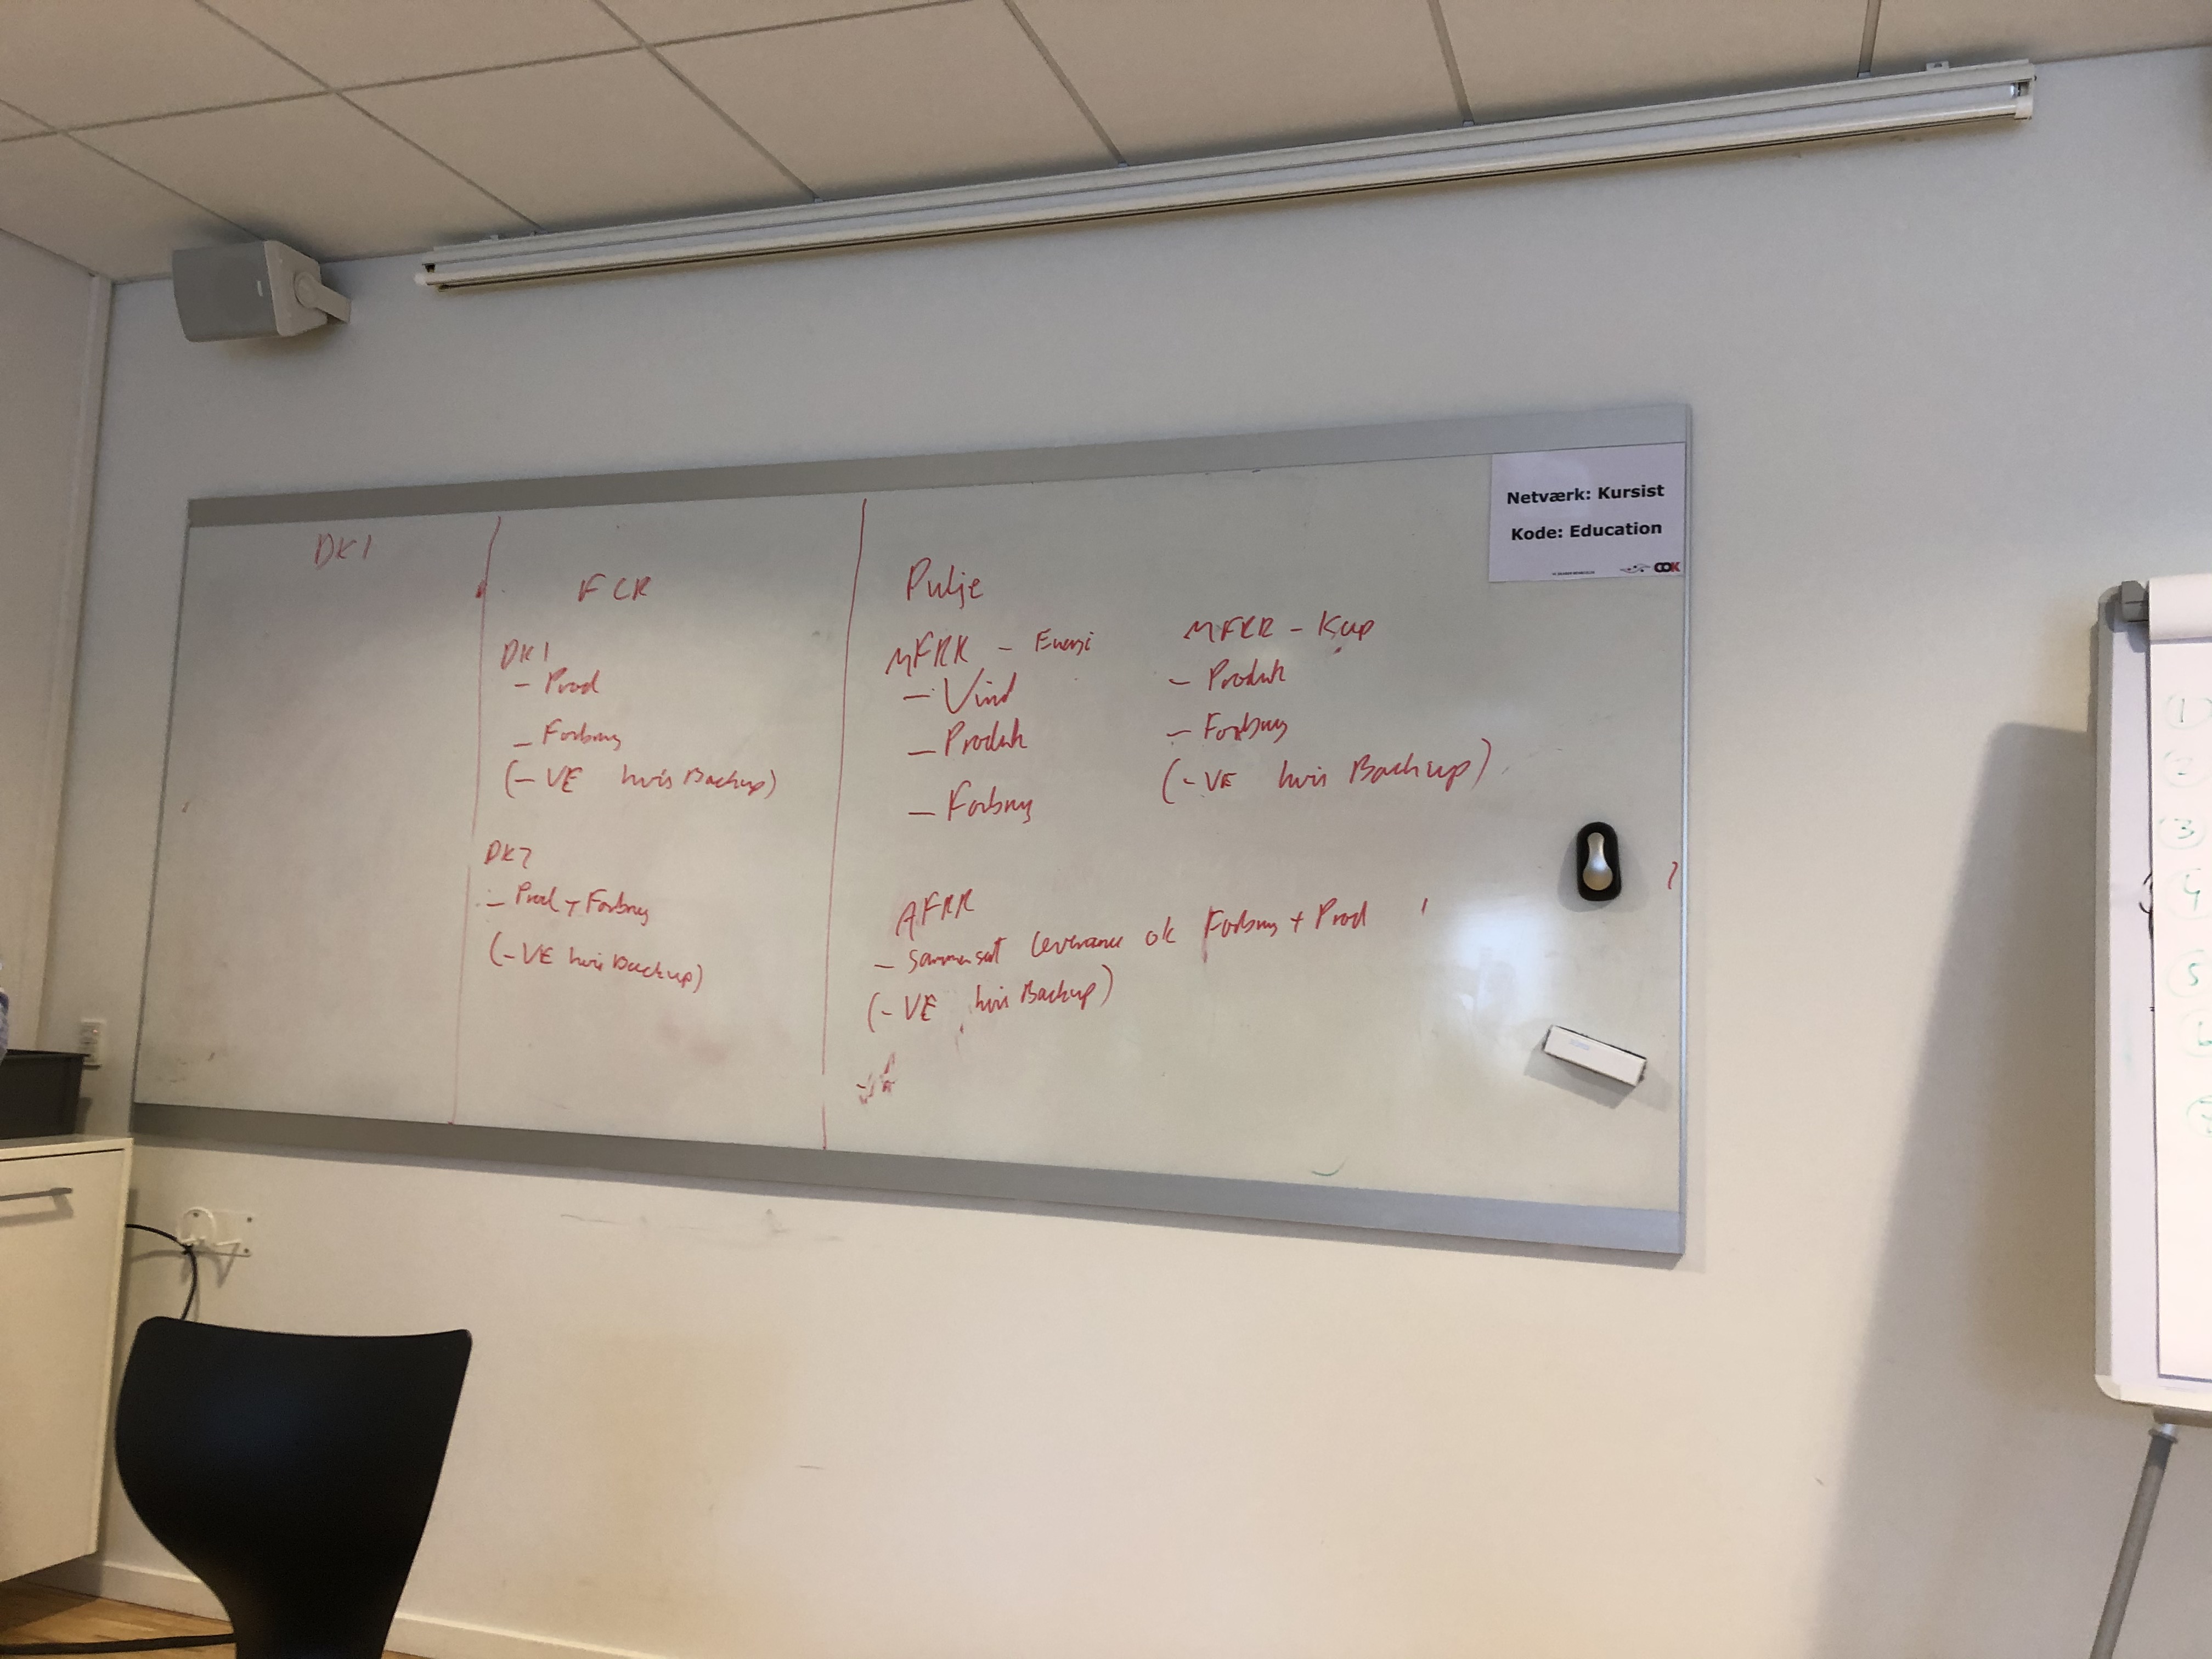 DK1
FCR
DK1
- Prod
- Forbrug
(- VE hvis Backup)
DK2
- Prod + Forbrug
(- VE hvis Backup)
Pulje
MFRR - Energi
- Vind
- Produk
- Forbrug
MFRR - Kap
- Produk
- Forbrug
(- VE hvis Backup)
AFRR
- Sammensat leverance ok Forbrug + Prod
(- VE hvis Backup)
Netværk: Kursist
Kode: Education
COK
1
2
3
4
5
6